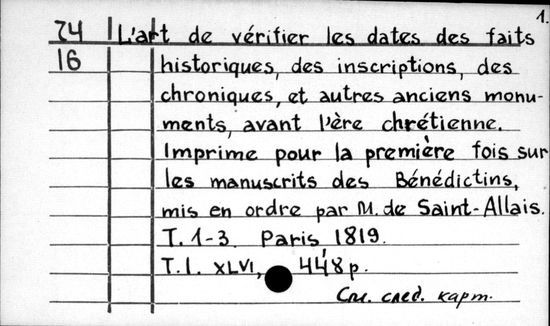 1.
74 L'art de vérifier les dates des faits
16 historiques, des inscriptions, des
chroniques, et autres anciens monu-
ments, avant l'ère chrétienne.
Imprime pour la première fois sur
les manuscrits des Bénédictins,
mis en ordre par M. de Saint-Allais.
T. 1-3. Paris, 1819.
T. I. XLVI, 448 p.
См. след. карт.